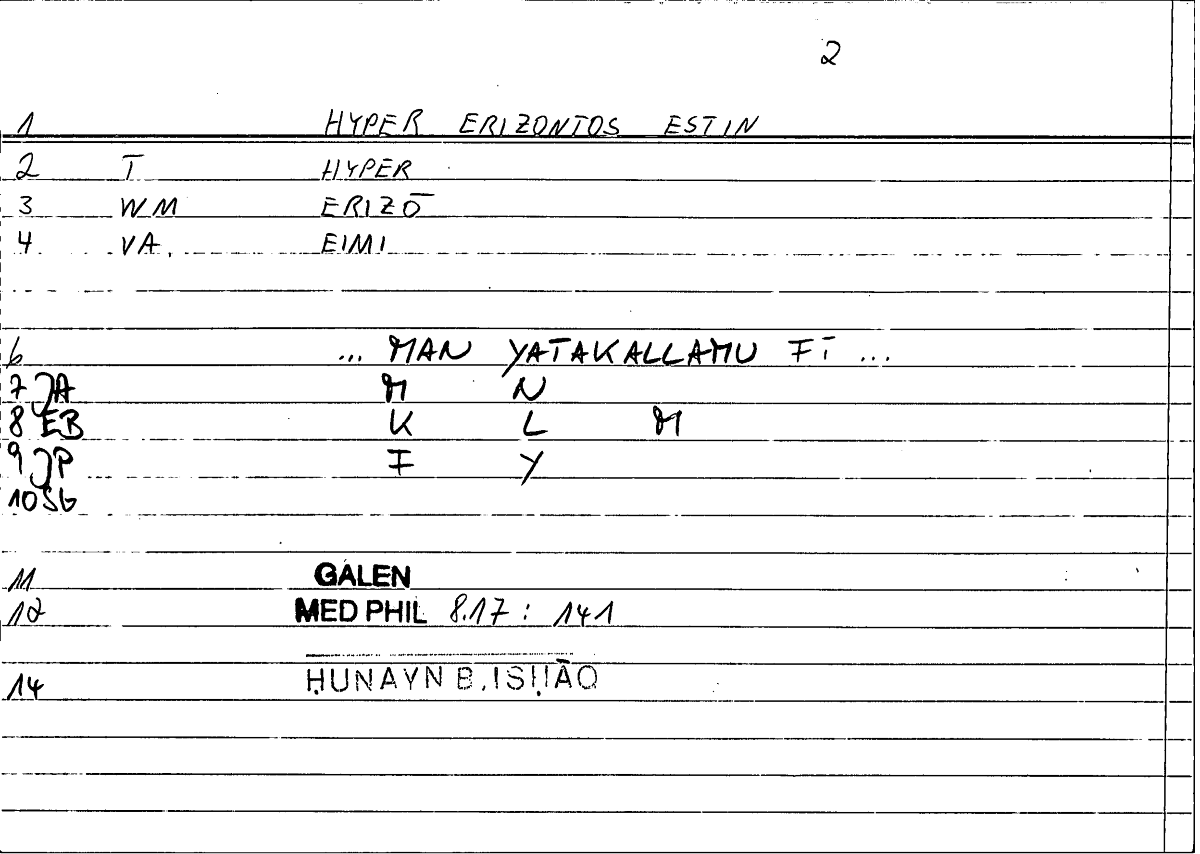 2
1 HYPER ERIZONTOS ESTIN
2 T HYPER
3 WM ERIZŌ
4 VA. EIMI
6 ... MAN YATAKALLAMU FĪ ...
7 JA M N
8 EB K L M
9 JP F Y
10 SG
11 GALEN
12 MED PHIL 8.17 : 141
14 ḤUNAYN B. ISḤĀQ